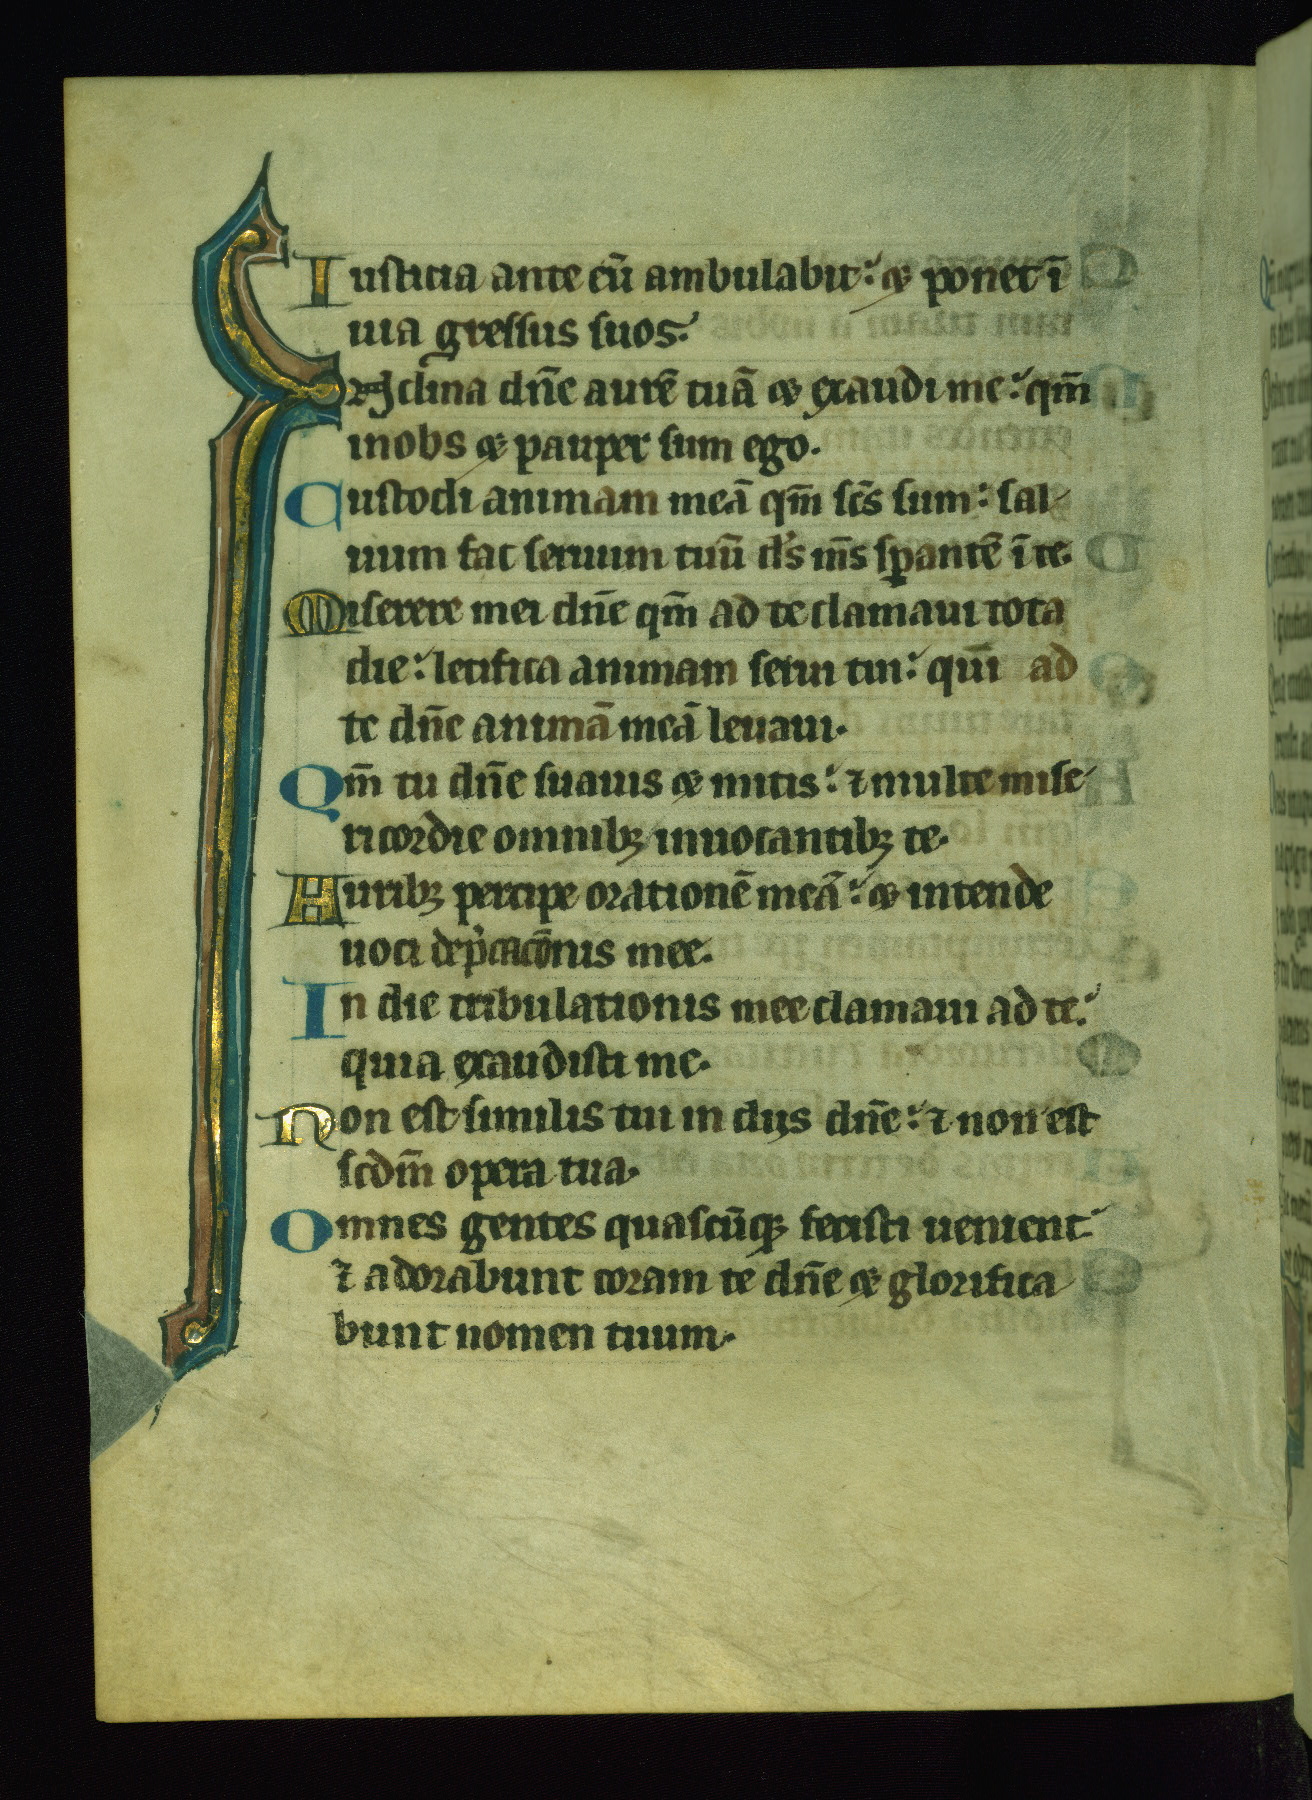 Iusticia ante eū ambulabit: & ponet ī
uia gressus suos.
INclina dn̄e aurē tuā & exaudi me: qm̄
inobs & pauper sum ego.
Custodi animam meā qm̄ sc̄s sum: sal
uum fac seruum tuū ds̄ ms̄ sperantē ī te.
Miserere mei dn̄e qm̄ ad te clamaui tota
die: letifica animam serui tui: qm̄ ad
te dn̄e animā meā leuaui.
Qm̄ tu dn̄e suauis & mitis: ⁊ multe mise
ricordie omnibꝫ inuocantibꝫ te.
Auribꝫ percipe orationē meā: & intende
uoci dep̄cacōnis mee.
In die tribulationis mee clamaui ad te:
quia exaudisti me.
Non est similis tui in dijs dn̄e: ⁊ non est
scdm̄ opera tua.
Omnes gentes quascūqꝫ fecisti uenient
⁊ adorabunt coram te dn̄e & glorifica
bunt nomen tuum.